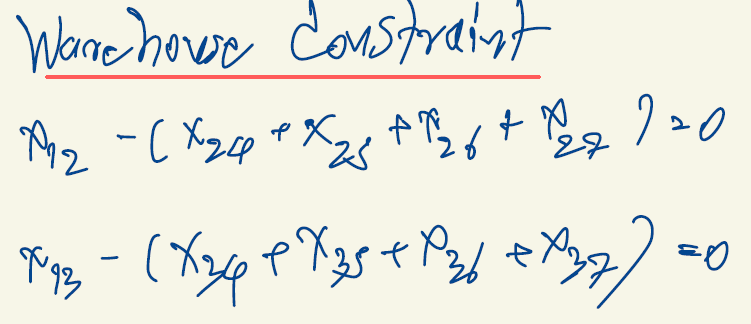 Warehouse Constraint
x₁₂ - (x₂₄ + x₂₅ + x₂₆ + x₂₇) = 0
x₁₃ - (x₃₄ + x₃₅ + x₃₆ + x₃₇) = 0